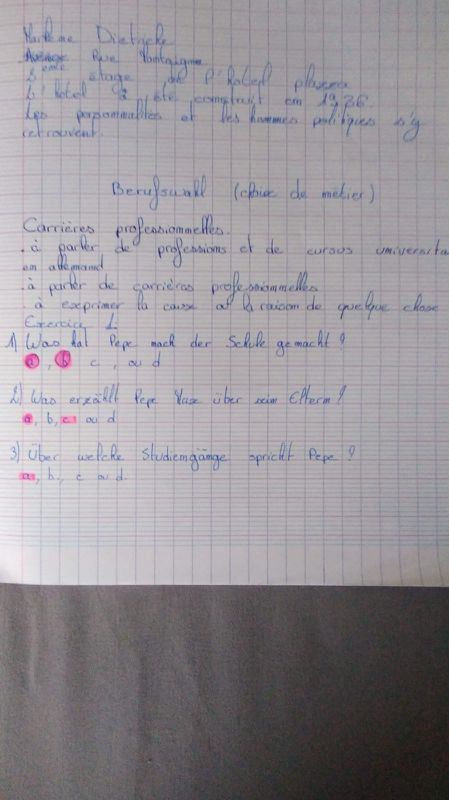 Marlene Dietriche
Avenue Rue Montaigne
5 eme etage de l'hotel plazza
L'hotel a été construit en 1936.
Les personnalités et les hommes politiques s'y
retrouvent.
Berufswahl (choix de metier)
Carrières professionnelles.
. à parler de professions et de cursus universita
en allemand
. à parler de carrières professionnelles
. à exprimer la cause ou la raison de quelque chose
Exercice 1
1) Was hat Pepe nach der Schule gemacht ?
a, b c, ou d
2) Was erzählt Pepe über sein Eltern ?
a, b, c ou d
3) Über welche Studiengänge spricht Pepe ?
a, b, c ou d.